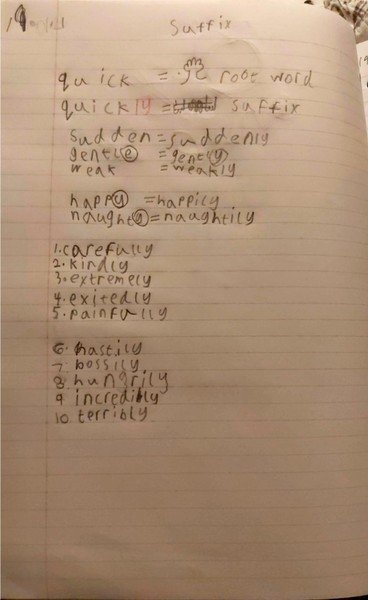 Suffix
quick = root word
quickly = suffix
sudden = suddenly
gentle = gently
weak = weakly
happy = happily
naughty = naughtily
1. carefully
2. kindly
3. extremely
4. exitedly
5. painfully
6. hastily
7. bossily
8. hungrily
9 incredibly
10. terribly